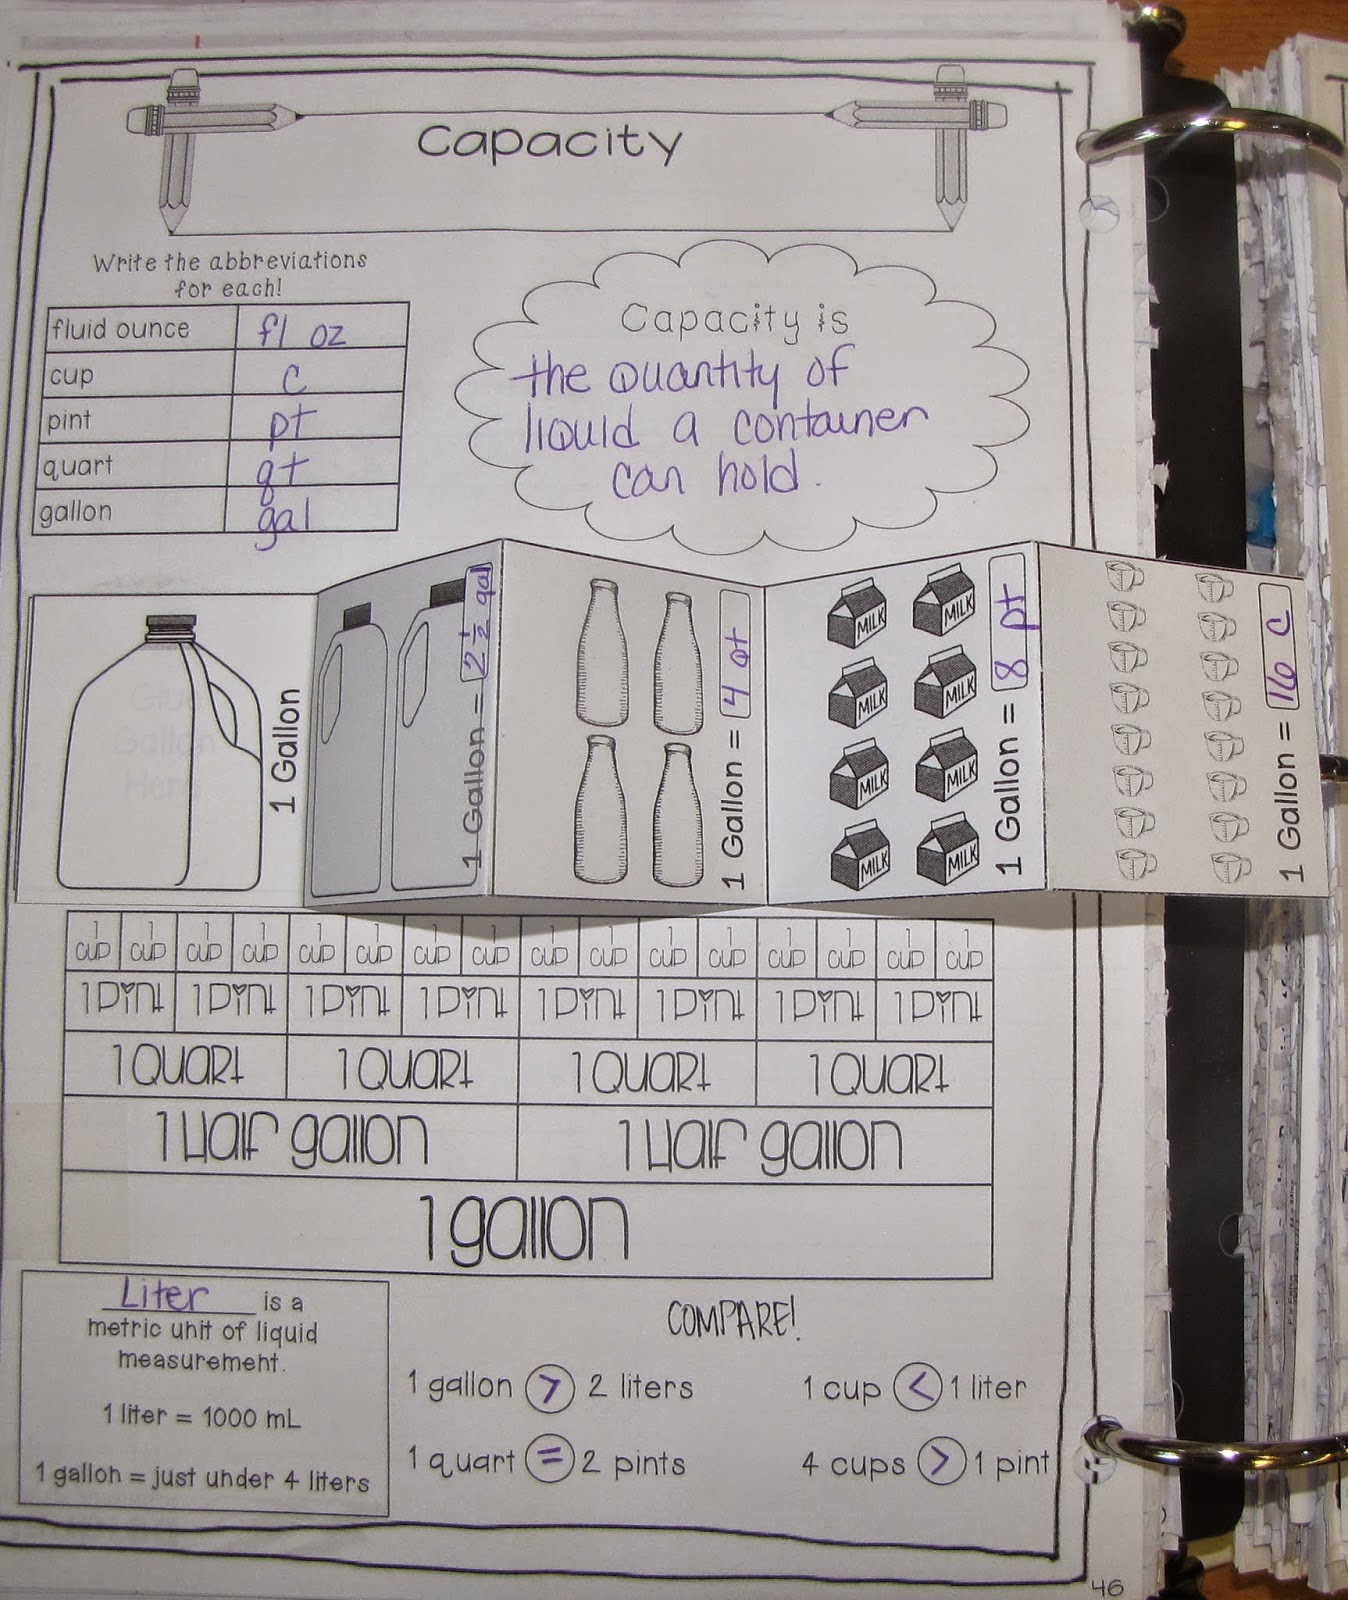 Capacity
Write the abbreviations
for each!
fluid ounce fl oz
cup c
pint pt
quart qt
gallon gal
Capacity is
the quantity of
liquid a container
can hold.
1 Gallon
1 Gallon = 2 1/2 gal
1 Gallon = 4 qt
MILK MILK
MILK MILK
MILK MILK
MILK MILK
1 Gallon = 8 pt
1 Gallon = 16 c
Glue
Gallon
Here
1 1 1 1 1 1 1 1 1 1 1 1 1 1 1 1
cup cup cup cup cup cup cup cup cup cup cup cup cup cup cup cup
1 pint 1 pint 1 pint 1 pint 1 pint 1 pint 1 pint 1 pint
1 Quart 1 Quart 1 Quart 1 Quart
1 Half gallon 1 Half gallon
1 gallon
Liter is a
metric unit of liquid
measurement.
1 liter = 1000 mL
1 gallon = just under 4 liters
COMPARE!
1 gallon > 2 liters 1 cup < 1 liter
1 quart = 2 pints 4 cups > 1 pint
46